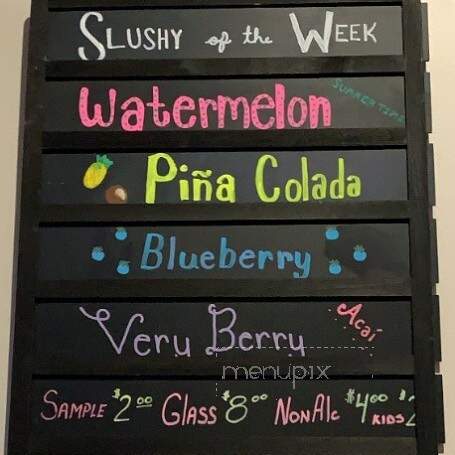 Slushy of the Week
Watermelon SUMMERTIME
Piña Colada
Blueberry
Very Berry Acaí
menupix
Sample $2.00 Glass $8.00 NonAlc $4.00
KIDS